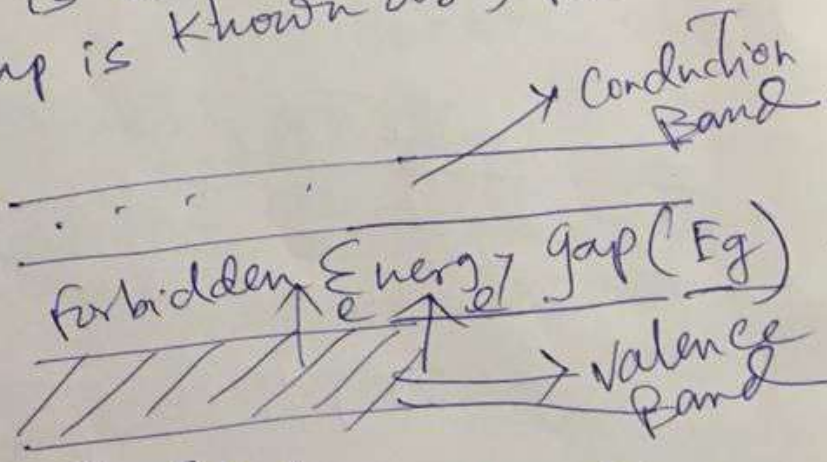 is known
Conduction
Band
forbidden Energy gap (Eg)
e e
Valence
Band